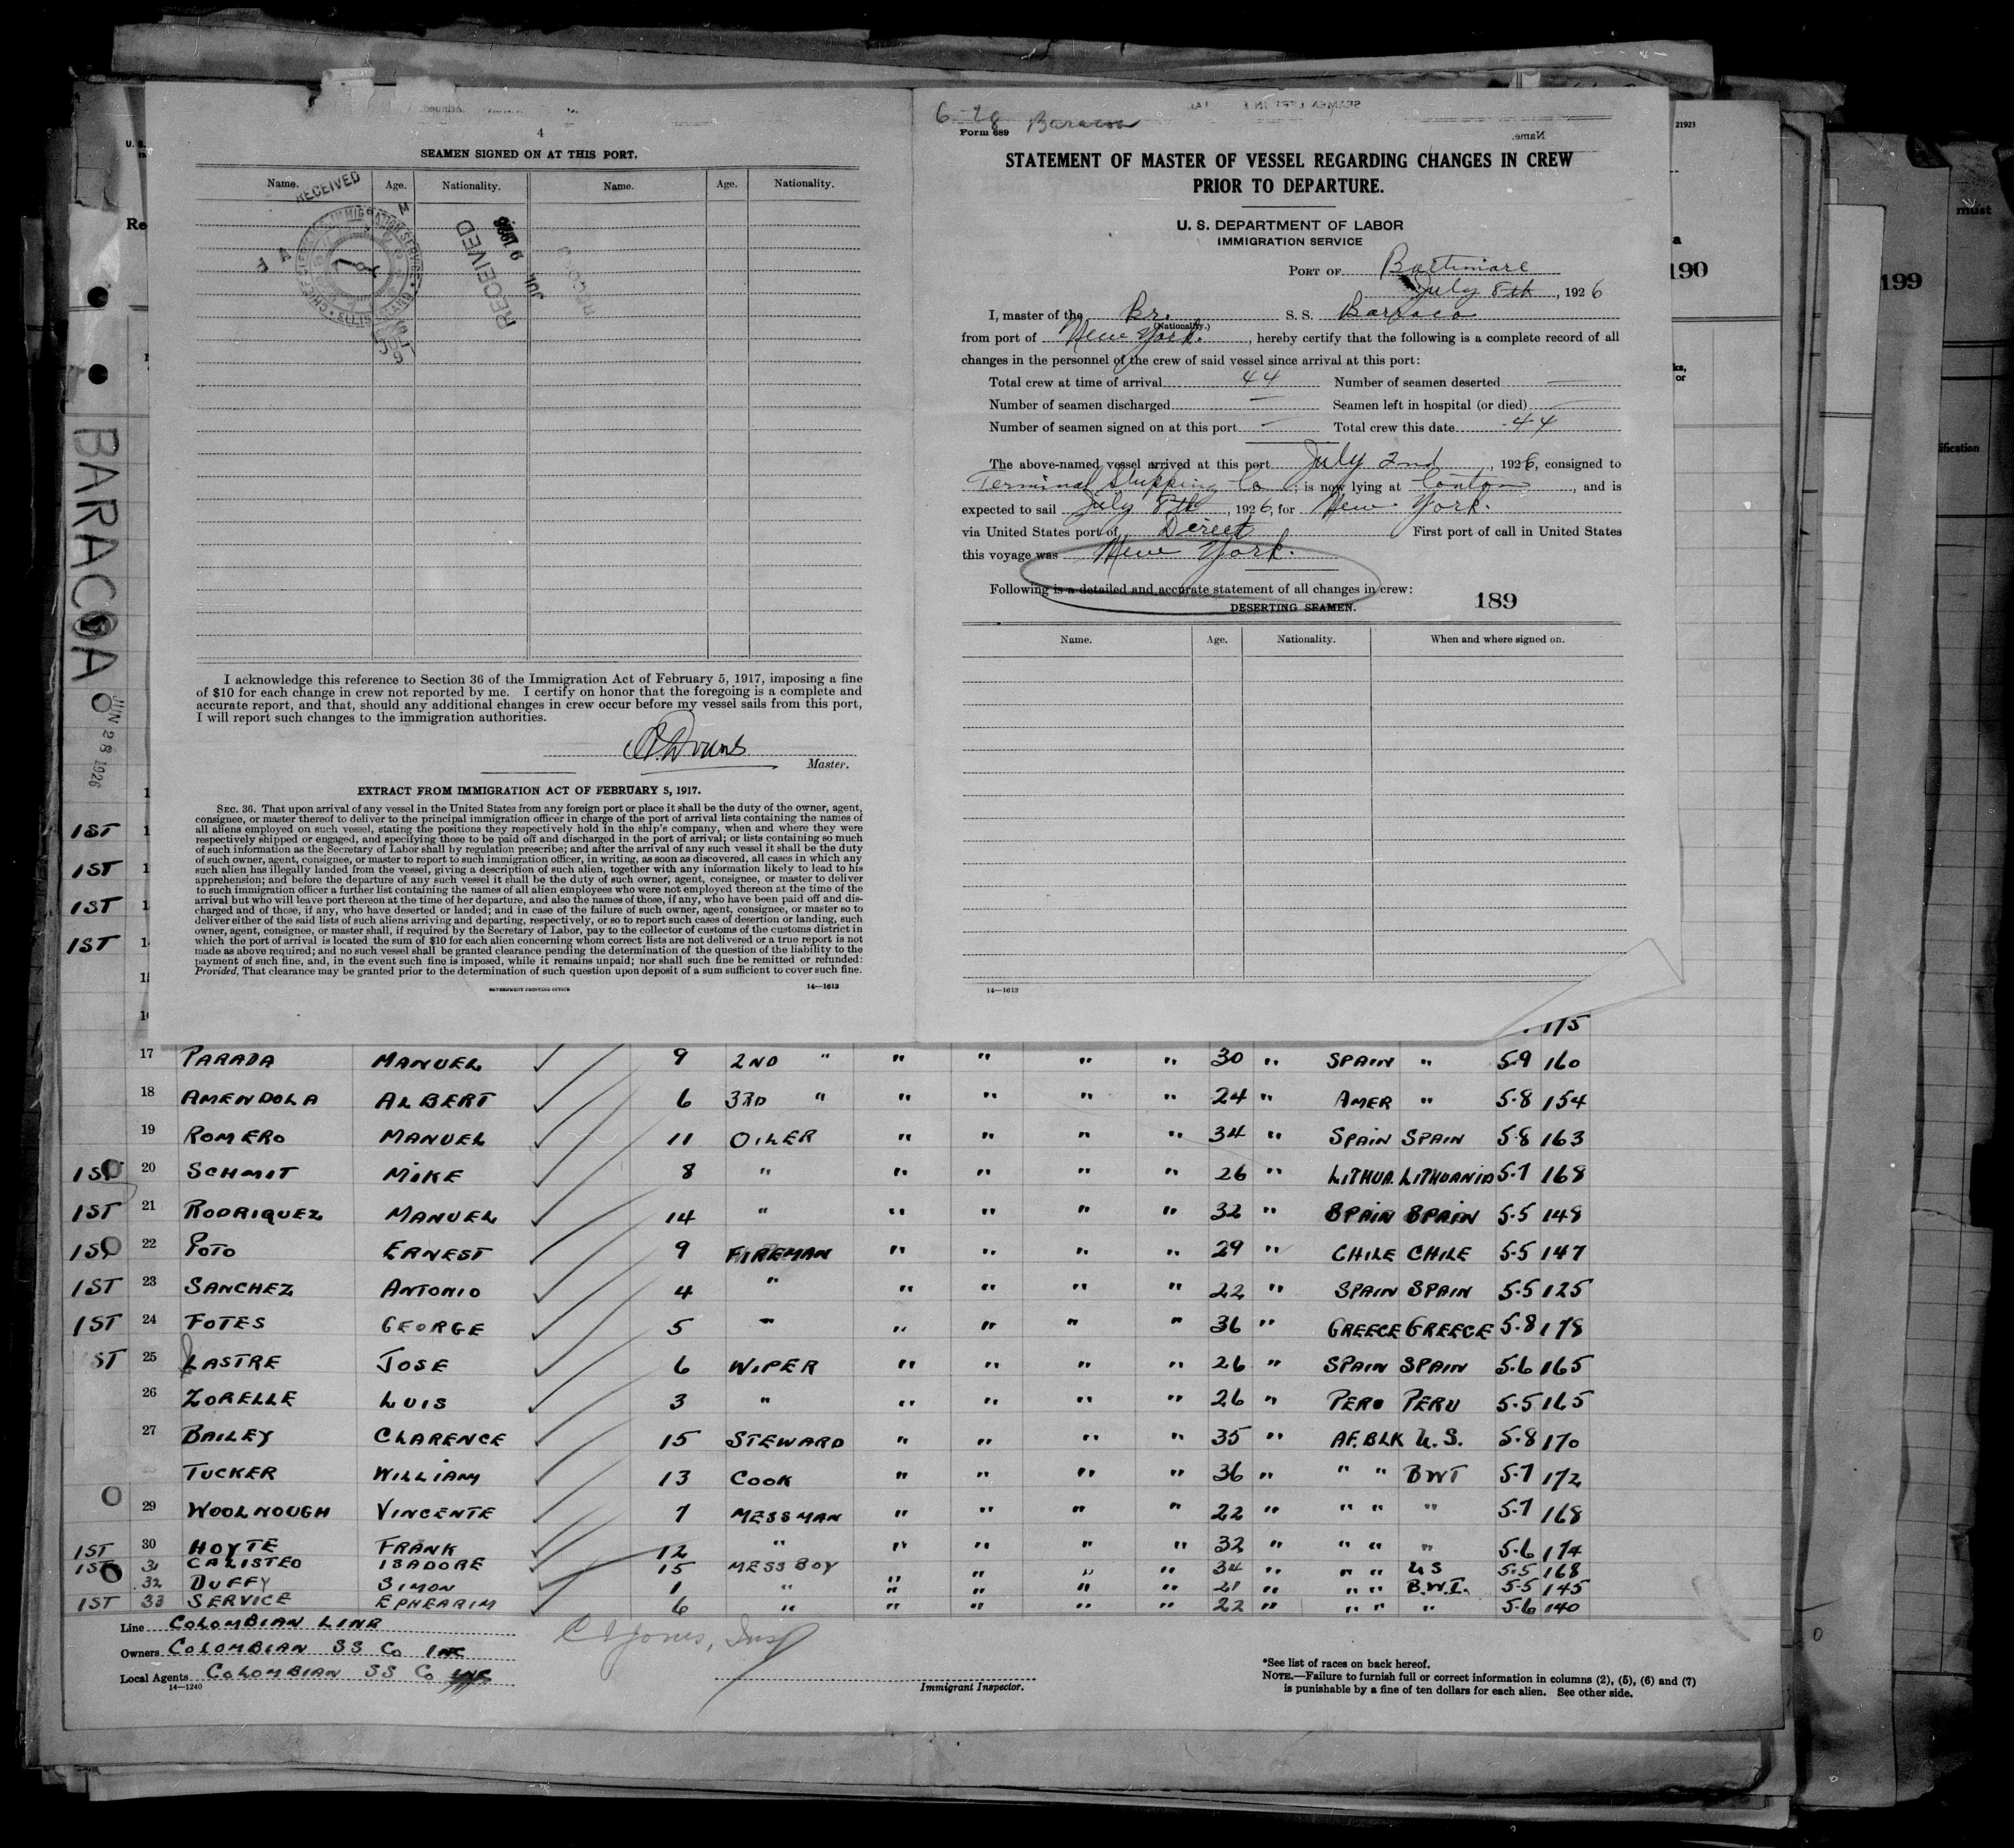 4
SEAMEN SIGNED ON AT THIS PORT.
Name. Age. Nationality. Name. Age. Nationality.
RECEIVED
RECEIVED
JUL
I acknowledge this reference to Section 36 of the Immigration Act of February 5, 1917, imposing a fine
of $10 for each change in crew not reported by me. I certify on honor that the foregoing is a complete and
accurate report, and that, should any additional changes in crew occur before my vessel sails from this port,
I will report such changes to the immigration authorities.
Master.
EXTRACT FROM IMMIGRATION ACT OF FEBRUARY 5, 1917.
SEC. 36. That upon arrival of any vessel in the United States from any foreign port or place it shall be the duty of the owner, agent,
consignee, or master thereof to deliver to the principal immigration officer in charge of the port of arrival lists containing the names of
all aliens employed on such vessel, stating the positions they respectively hold in the ship's company, when and where they were
respectively shipped or engaged, and specifying those to be paid off and discharged in the port of arrival; or lists containing so much
of such information as the Secretary of Labor shall by regulation prescribe; and after the arrival of any such vessel it shall be the duty
of such owner, agent, consignee, or master to report to such immigration officer, in writing, as soon as discovered, all cases in which any
such alien has illegally landed from the vessel, giving a description of such alien, together with any information likely to lead to his
apprehension; and before the departure of any such vessel it shall be the duty of such owner, agent, consignee, or master to deliver
to such immigration officer a further list containing the names of all alien employees who were not employed thereon at the time of the
arrival but who will leave port thereon at the time of her departure, and also the names of those, if any, who have been paid off and dis-
charged and of those, if any, who have deserted or landed; and in case of the failure of such owner, agent, consignee, or master so to
deliver either of the said lists of such aliens arriving and departing, respectively, or so to report such cases of desertion or landing, such
owner, agent, consignee, or master shall, if required by the Secretary of Labor, pay to the collector of customs of the customs district in
which the port of arrival is located the sum of $10 for each alien concerning whom correct lists are not delivered or a true report is not
made as above required; and no such vessel shall be granted clearance pending the determination of the question of the liability to the
payment of such fine, and, in the event such fine is imposed, while it remains unpaid; nor shall such fine be remitted or refunded:
Provided, That clearance may be granted prior to the determination of such question upon deposit of a sum sufficient to cover such fine.
GOVERNMENT PRINTING OFFICE 14—1613
6-28 Baracoa
Form 689
STATEMENT OF MASTER OF VESSEL REGARDING CHANGES IN CREW
PRIOR TO DEPARTURE.
U. S. DEPARTMENT OF LABOR
IMMIGRATION SERVICE
PORT OF Baltimore
July 8th, 1926
I, master of the Br. S. S. Barraco
(Nationality.)
from port of New York., hereby certify that the following is a complete record of all
changes in the personnel of the crew of said vessel since arrival at this port:
Total crew at time of arrival 44 Number of seamen deserted —
Number of seamen discharged — Seamen left in hospital (or died) —
Number of seamen signed on at this port - Total crew this date 44
The above-named vessel arrived at this port July 2nd, 1926, consigned to
Terminal Shipping Co; is now lying at Canton, and is
expected to sail July 8th, 1926, for New York.
via United States port of Direct First port of call in United States
this voyage was New York.
Following is a detailed and accurate statement of all changes in crew:
DESERTING SEAMEN. 189
Name. Age. Nationality. When and where signed on.
14—1613
21923
190
199
must
BARACOA
JUN 28 1926
1ST
1ST
1ST
1ST
175
17 PARADA MANUEL 9 2ND " " " " " 30 " SPAIN " 5-9 160
18 AMENDOLA ALBERT 6 3RD " " " " " 24 " AMER " 5-8 154
19 ROMERO MANUEL 11 OILER " " " " 34 " SPAIN SPAIN 5-8 163
1ST 20 SCHMIT MIKE 8 " " " " " 26 " LITHUA. LITHUANIA 5-7 168
1ST 21 RODRIQUEZ MANUEL 14 " " " " " 32 " SPAIN SPAIN 5-5 148
1ST 22 POTO ERNEST 9 FIREMAN " " " " 29 " CHILE CHILE 5-5 147
1ST 23 SANCHEZ ANTONIO 4 " " " " " 22 " SPAIN SPAIN 5-5 125
1ST 24 FOTES GEORGE 5 " " " " " 36 " GREECE GREECE 5-8 178
1ST 25 LASTRE JOSE 6 WIPER " " " " 26 " SPAIN SPAIN 5-6 165
26 ZORELLE LUIS 3 " " " " " 26 " PERU PERU 5-5 165
27 BAILEY CLARENCE 15 STEWARD " " " " 35 " AF. BLK U.S. 5-8 170
TUCKER WILLIAM 13 COOK " " " " 36 " " " BWI 5-7 172
29 WOOLNOUGH VINCENTE 7 MESSMAN " " " " 22 " " " " 5-7 168
1ST 30 HOYTE FRANK 12 " " " " " 32 " " " " 5-6 174
1ST 31 CALISTEO ISADORE 15 MESS BOY " " " " 34 " " " US 5-5 168
32 DUFFY SIMON 1 " " " " " 21 " " " B.W.I. 5-5 145
1ST 33 SERVICE EPHEARIM 6 " " " " " 22 " " " " 5-6 140
Line COLOMBIAN LINE
Owners COLOMBIAN SS Co INC
Local Agents COLOMBIAN SS Co INC
14—1240
Jones, Insp
Immigrant Inspector.
*See list of races on back hereof.
NOTE.—Failure to furnish full or correct information in columns (2), (5), (6) and (7)
is punishable by a fine of ten dollars for each alien. See other side.